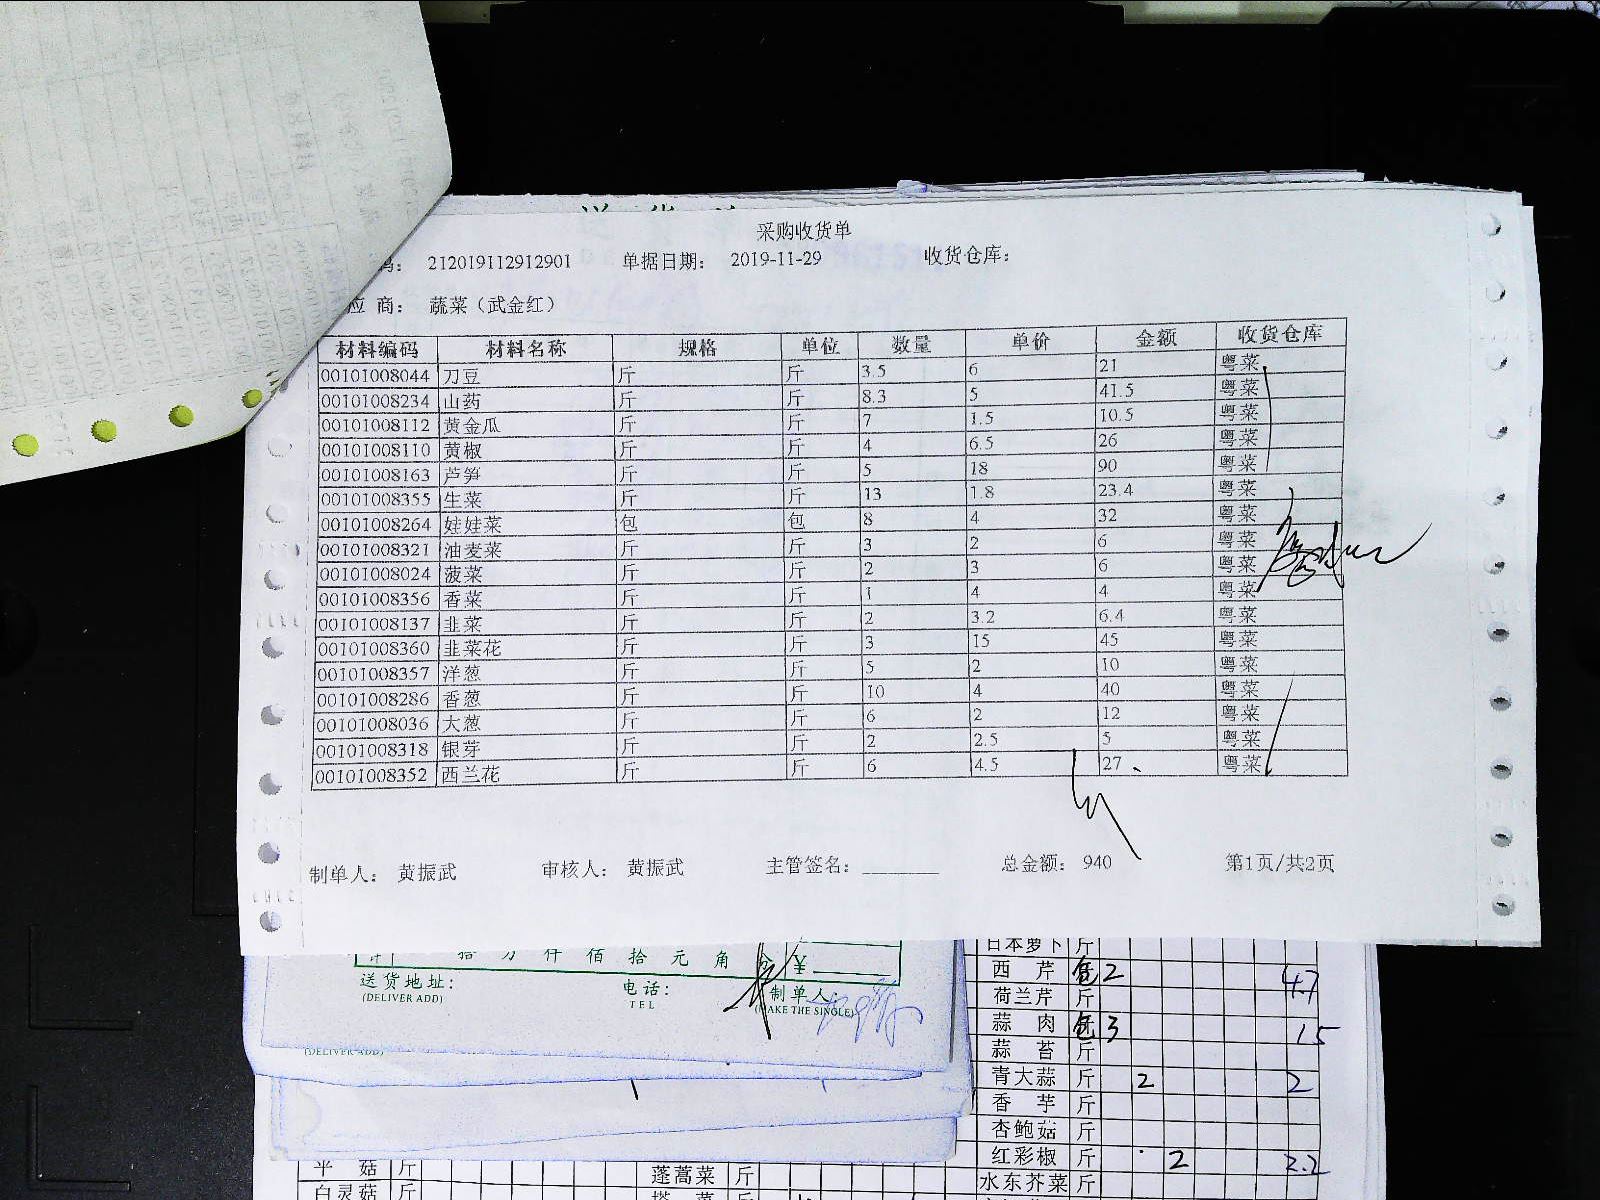 采购收货单
212019112912901 单据日期： 2019-11-29 收货仓库：
应 商： 蔬菜（武金红）
材料编码 材料名称 规格 单位 数量 单价 金额 收货仓库
00101008044 刀豆 斤 斤 3.5 6 21 粤菜
00101008234 山药 斤 斤 8.3 5 41.5 粤菜
00101008112 黄金瓜 斤 斤 7 1.5 10.5 粤菜
00101008110 黄椒 斤 斤 4 6.5 26 粤菜
00101008163 芦笋 斤 斤 5 18 90 粤菜
00101008355 生菜 斤 斤 13 1.8 23.4 粤菜
00101008264 娃娃菜 包 包 8 4 32 粤菜
00101008321 油麦菜 斤 斤 3 2 6 粤菜
00101008024 菠菜 斤 斤 2 3 6 粤菜
00101008356 香菜 斤 斤 1 4 4 粤菜
00101008137 韭菜 斤 斤 2 3.2 6.4 粤菜
00101008360 韭菜花 斤 斤 3 15 45 粤菜
00101008357 洋葱 斤 斤 5 2 10 粤菜
00101008286 香葱 斤 斤 10 4 40 粤菜
00101008036 大葱 斤 斤 6 2 12 粤菜
00101008318 银芽 斤 斤 2 2.5 5 粤菜
00101008352 西兰花 斤 斤 6 4.5 27 粤菜
制单人： 黄振武 审核人： 黄振武 主管签名： 总金额： 940 第1页/共2页
拾 万 仟 佰 拾 元 角 ¥
送货地址： 电话： 制单人
(DELIVER ADD) TEL (MAKE THE SINGLE)
(DELIVER ADD)
日本萝卜 斤
西 芹 包 2 4.7
荷兰芹 斤
蒜 肉 包 3 15
蒜 苔 斤
青大蒜 斤 2 2
香 芋 斤
杏鲍菇 斤
红彩椒 斤 2 2.2
平 菇 斤 蓬蒿菜 斤 水东芥菜 斤
白灵菇 斤